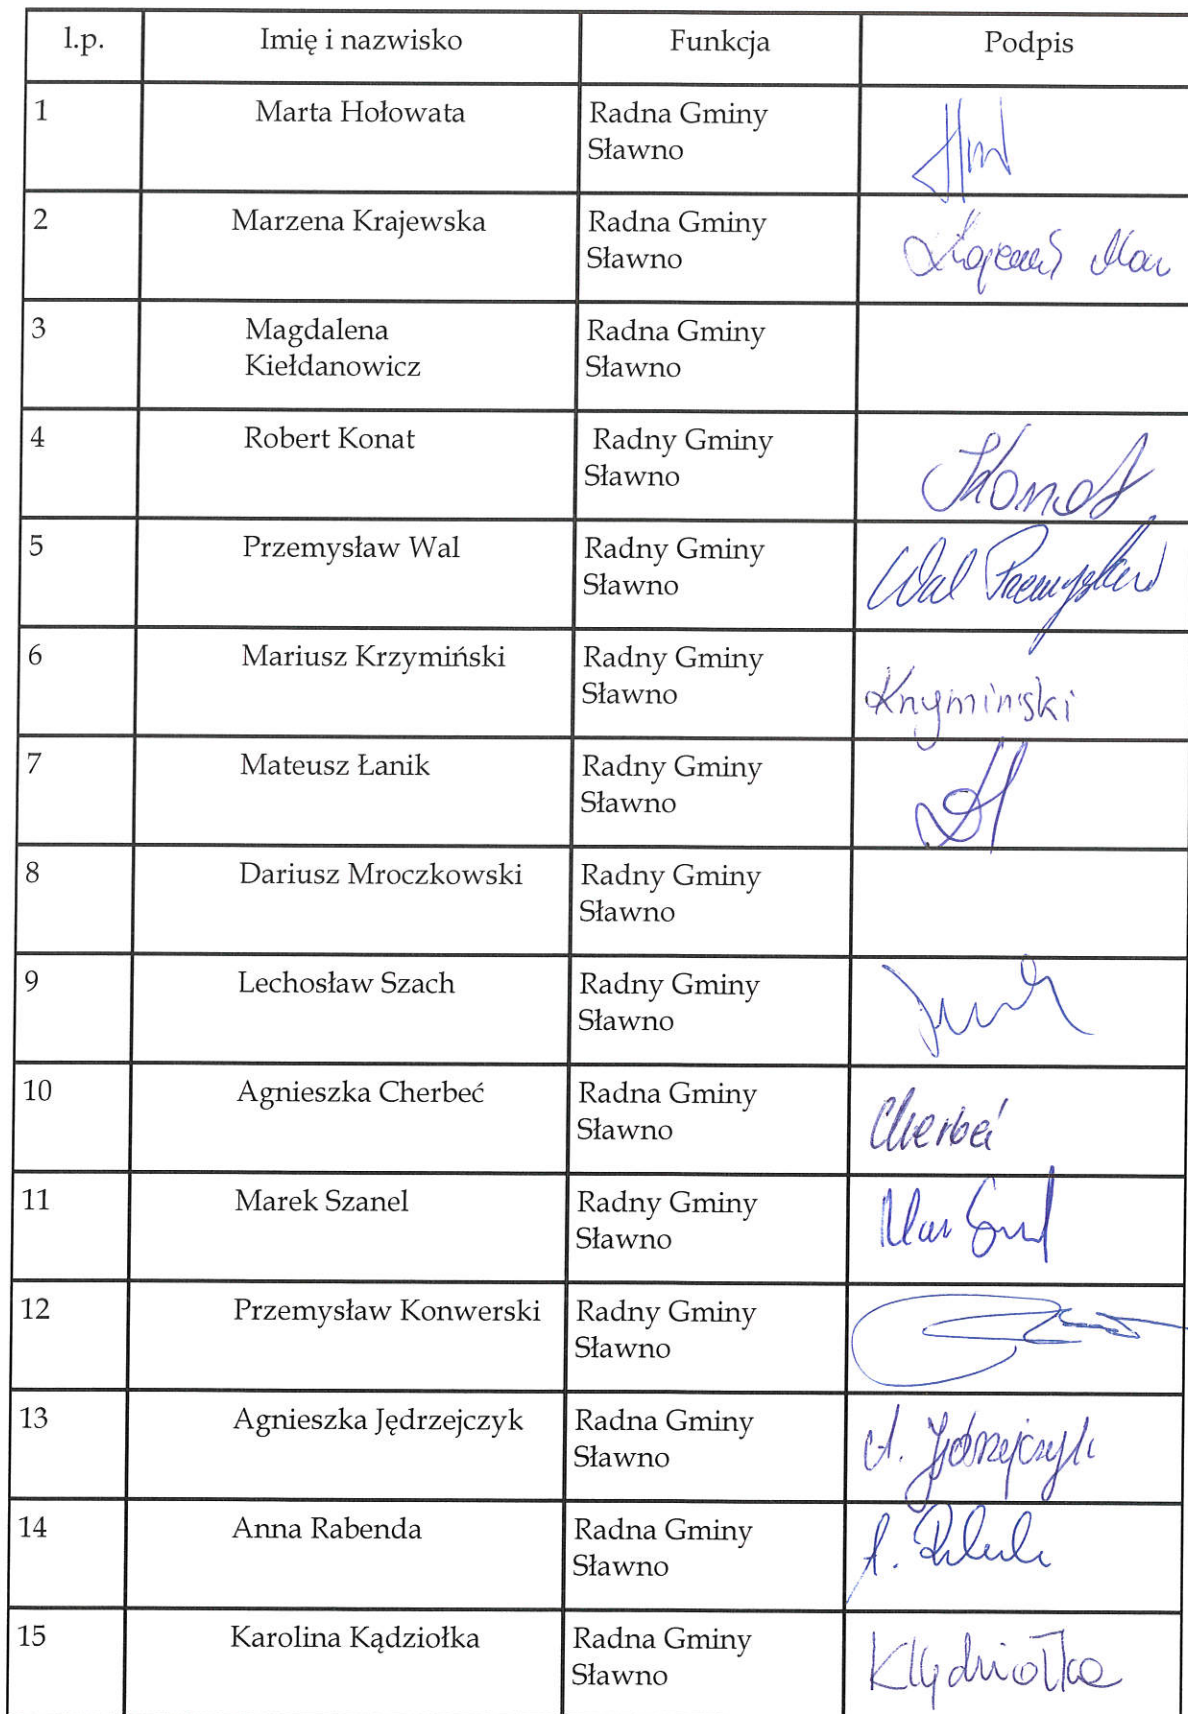 l.p. Imię i nazwisko Funkcja Podpis
1 Marta Hołowata Radna Gminy
Sławno
2 Marzena Krajewska Radna Gminy
Sławno
3 Magdalena Radna Gminy
Kiełdanowicz Sławno
4 Robert Konat Radny Gminy
Sławno Konat
5 Przemysław Wal Radny Gminy
Sławno Wal Przemysław
6 Mariusz Krzymiński Radny Gminy
Sławno Krzyminski
7 Mateusz Łanik Radny Gminy
Sławno
8 Dariusz Mroczkowski Radny Gminy
Sławno
9 Lechosław Szach Radny Gminy
Sławno
10 Agnieszka Cherbeć Radna Gminy
Sławno Cherbeć
11 Marek Szanel Radny Gminy
Sławno
12 Przemysław Konwerski Radny Gminy
Sławno
13 Agnieszka Jędrzejczyk Radna Gminy
Sławno A. Jędrzejczyk
14 Anna Rabenda Radna Gminy
Sławno
15 Karolina Kądziołka Radna Gminy
Sławno KKądziołka